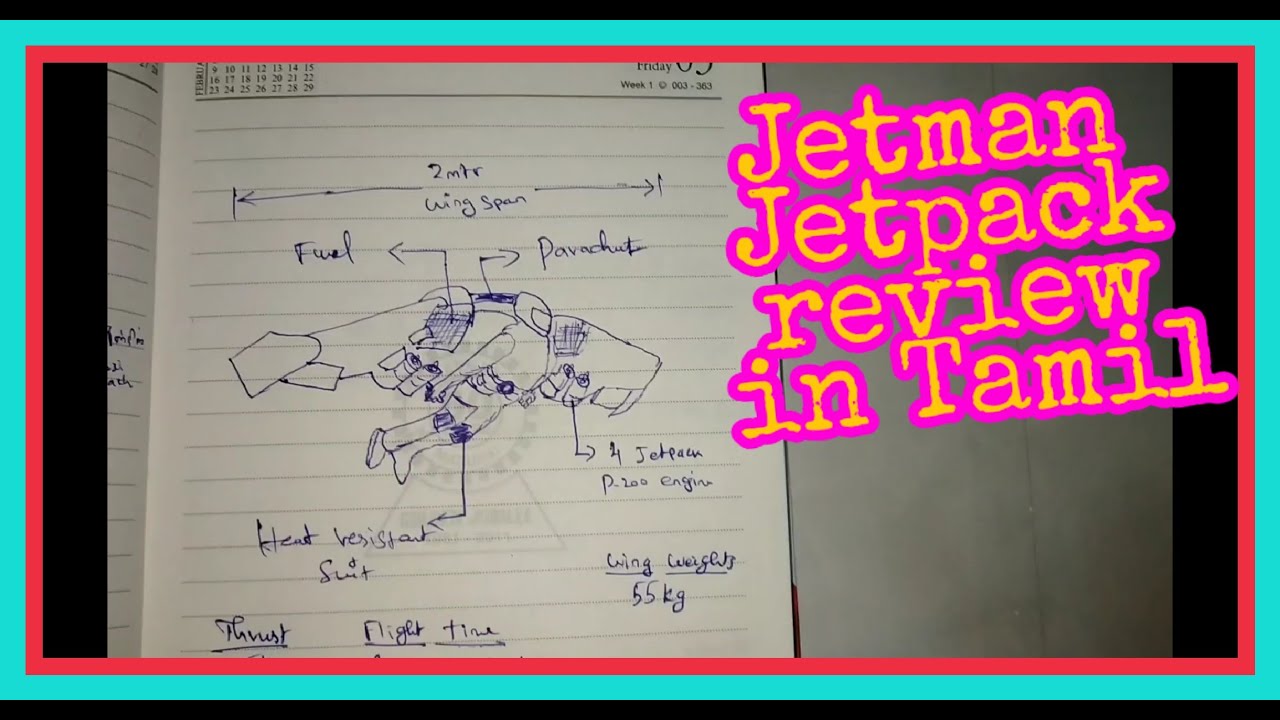 FEBRUA
9 10 11 12 13 14 15
16 17 18 19 20 21 22
23 24 25 26 27 28 29
Friday 03
Week 1 © 003 - 363
Jetman
Jetpack
review
in Tamil
2mtr
Wing span
Fuel
Parachut
4 Jetpack
P-200 engine
Heat resistant
Suit
Wing Weights
55kg
Thrust
Flight time